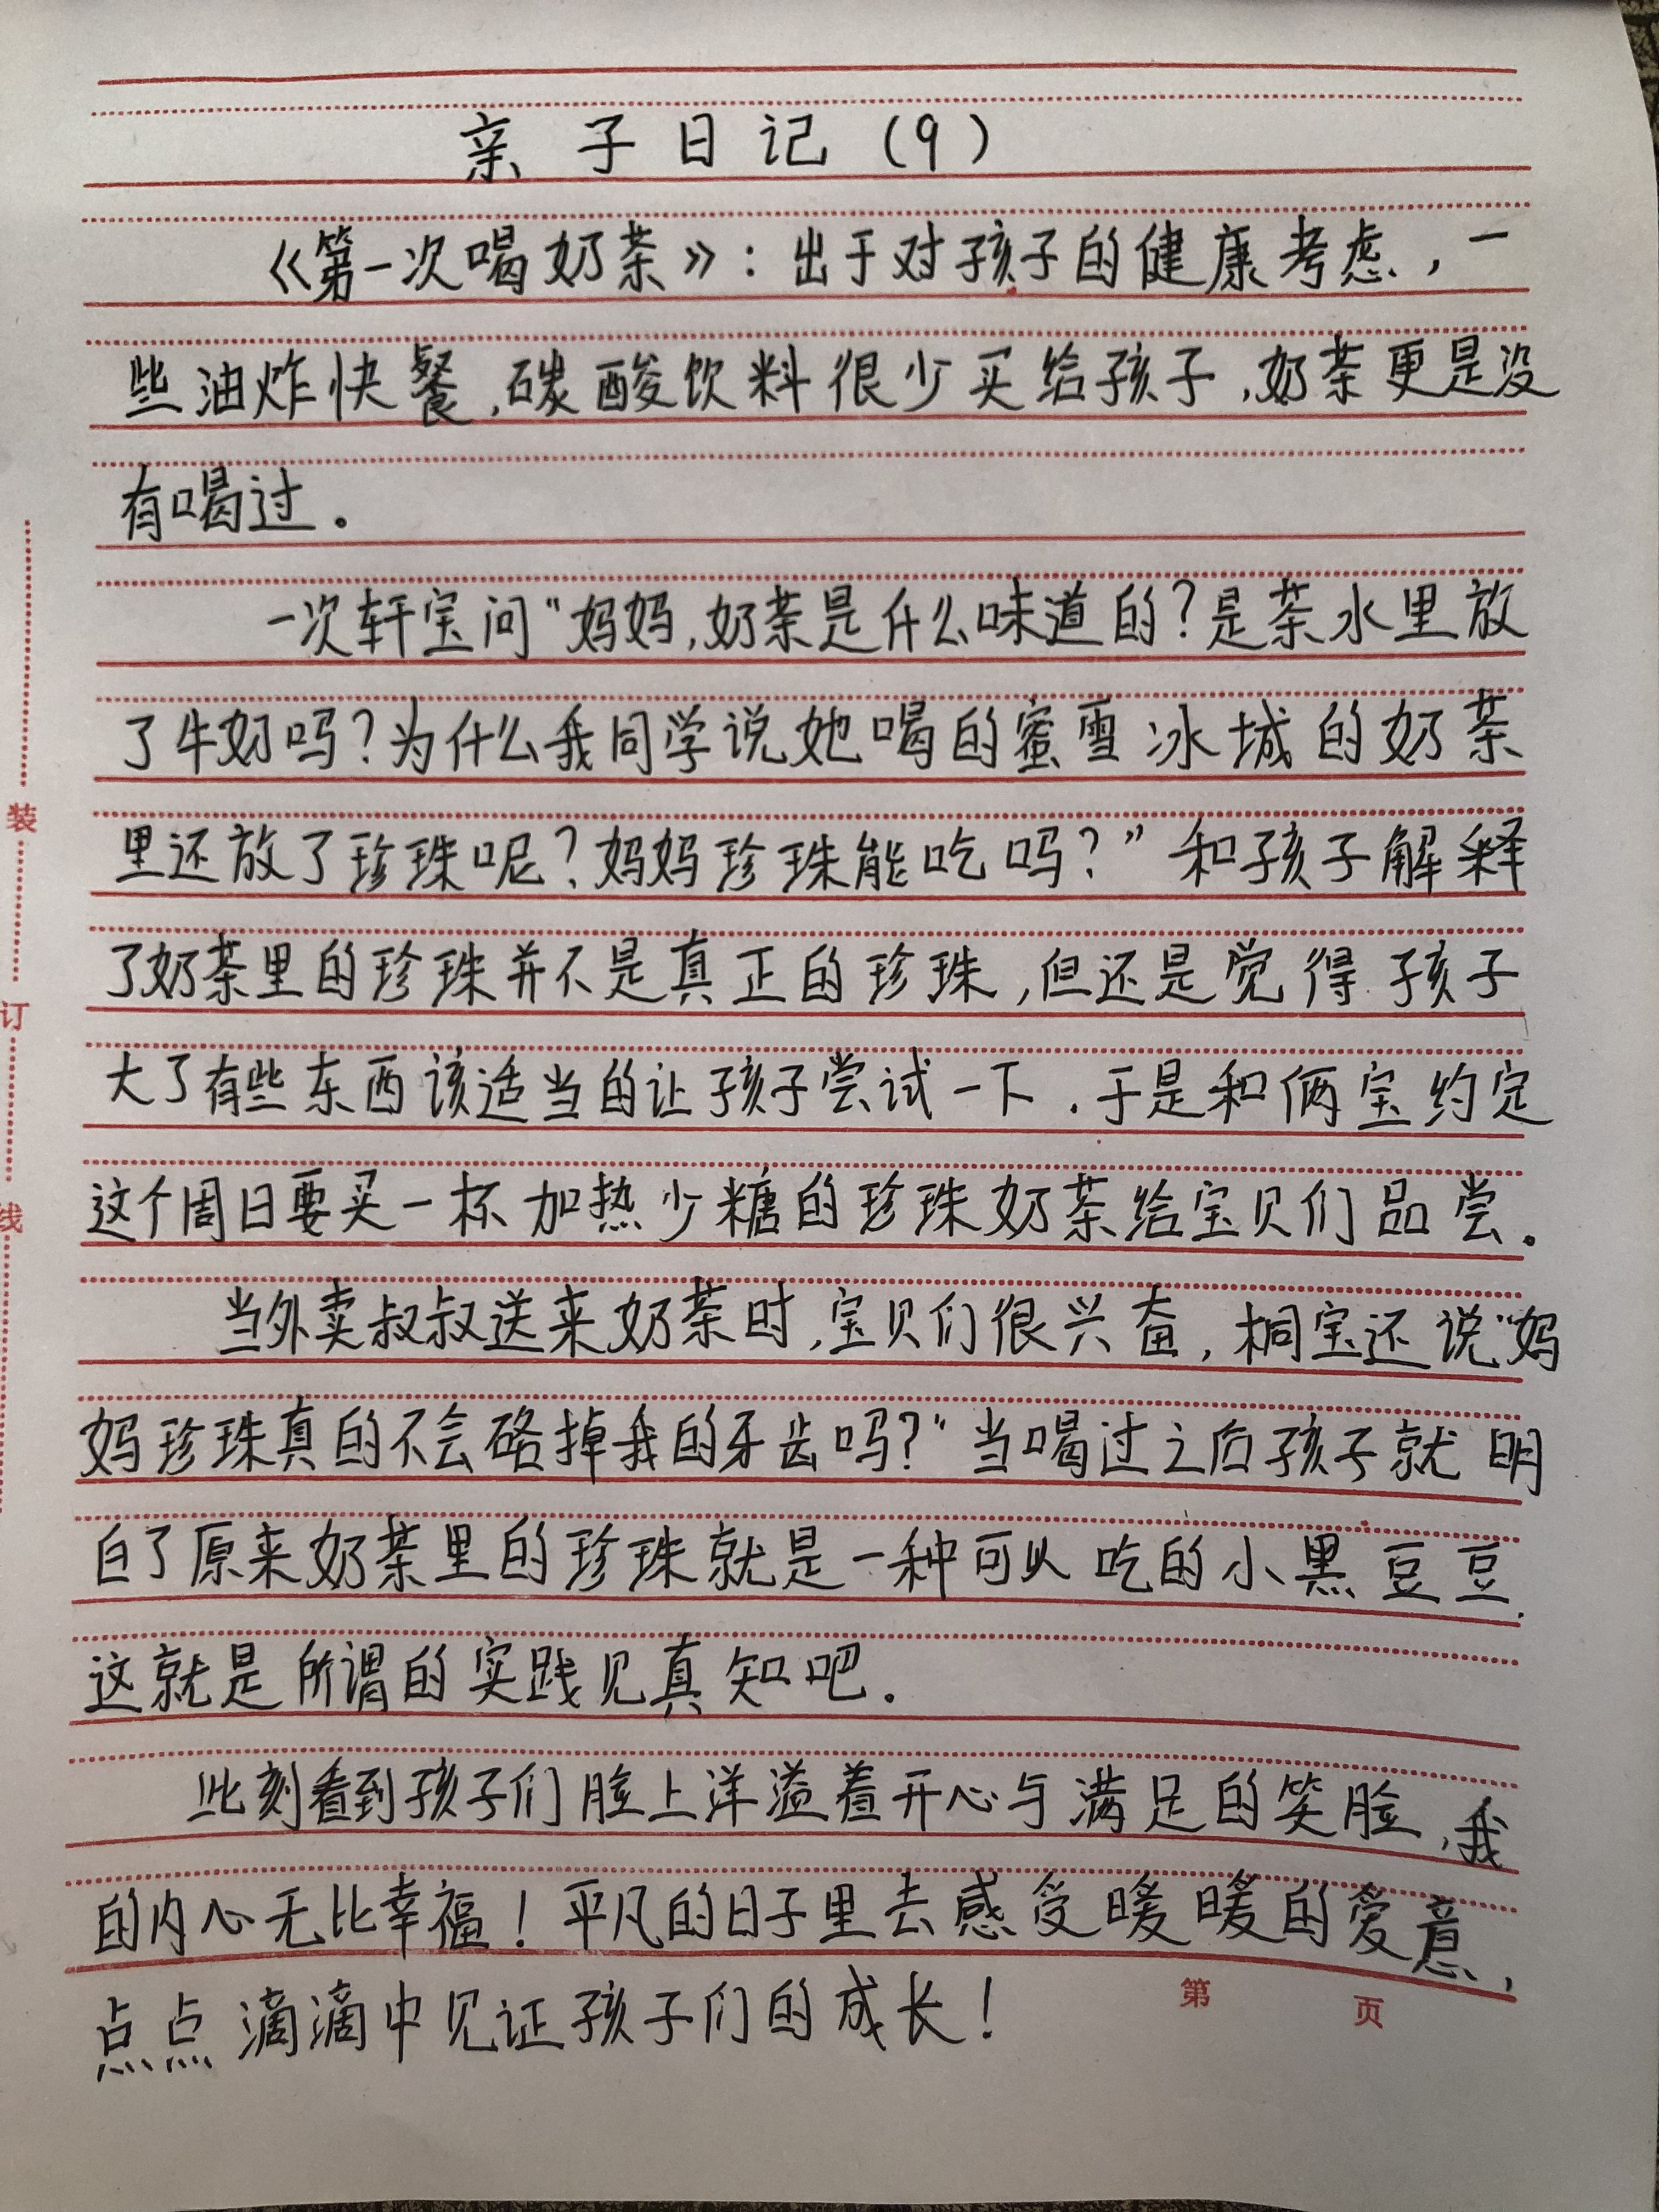 亲子日记(9)
《第一次喝奶茶》：出于对孩子的健康考虑，一
些油炸快餐,碳酸饮料很少买给孩子,奶茶更是没
有喝过.
一次轩宝问"妈妈,奶茶是什么味道的?是茶水里放
了牛奶吗?为什么我同学说她喝的蜜雪冰城的奶茶
里还放了珍珠呢?妈妈珍珠能吃吗?"和孩子解释
了奶茶里的珍珠并不是真正的珍珠,但还是觉得孩子
大了有些东西该适当的让孩子尝试一下.于是和俩宝约定
这个周日要买一杯加热少糖的珍珠奶茶给宝贝们品尝.
当外卖叔叔送来奶茶时,宝贝们很兴奋,桐宝还说"妈
妈珍珠真的不会硌掉我的牙齿吗?"当喝过之后孩子就明
白了原来奶茶里的珍珠就是一种可以吃的小黑豆豆.
这就是所谓的实践见真知吧.
此刻看到孩子们脸上洋溢着开心与满足的笑脸,我
的内心无比幸福!平凡的日子里去感受暖暖的爱意,
点点滴滴中见证孩子们的成长!
装
订
线
第 页